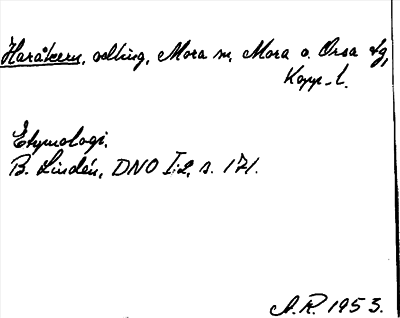 Haråkern, odling, Mora sn, Mora o. Orsa tg,
Kopp. l.
Etymologi.
B. Lindén, DNO I:2, s. 171.
A.R. 1953.